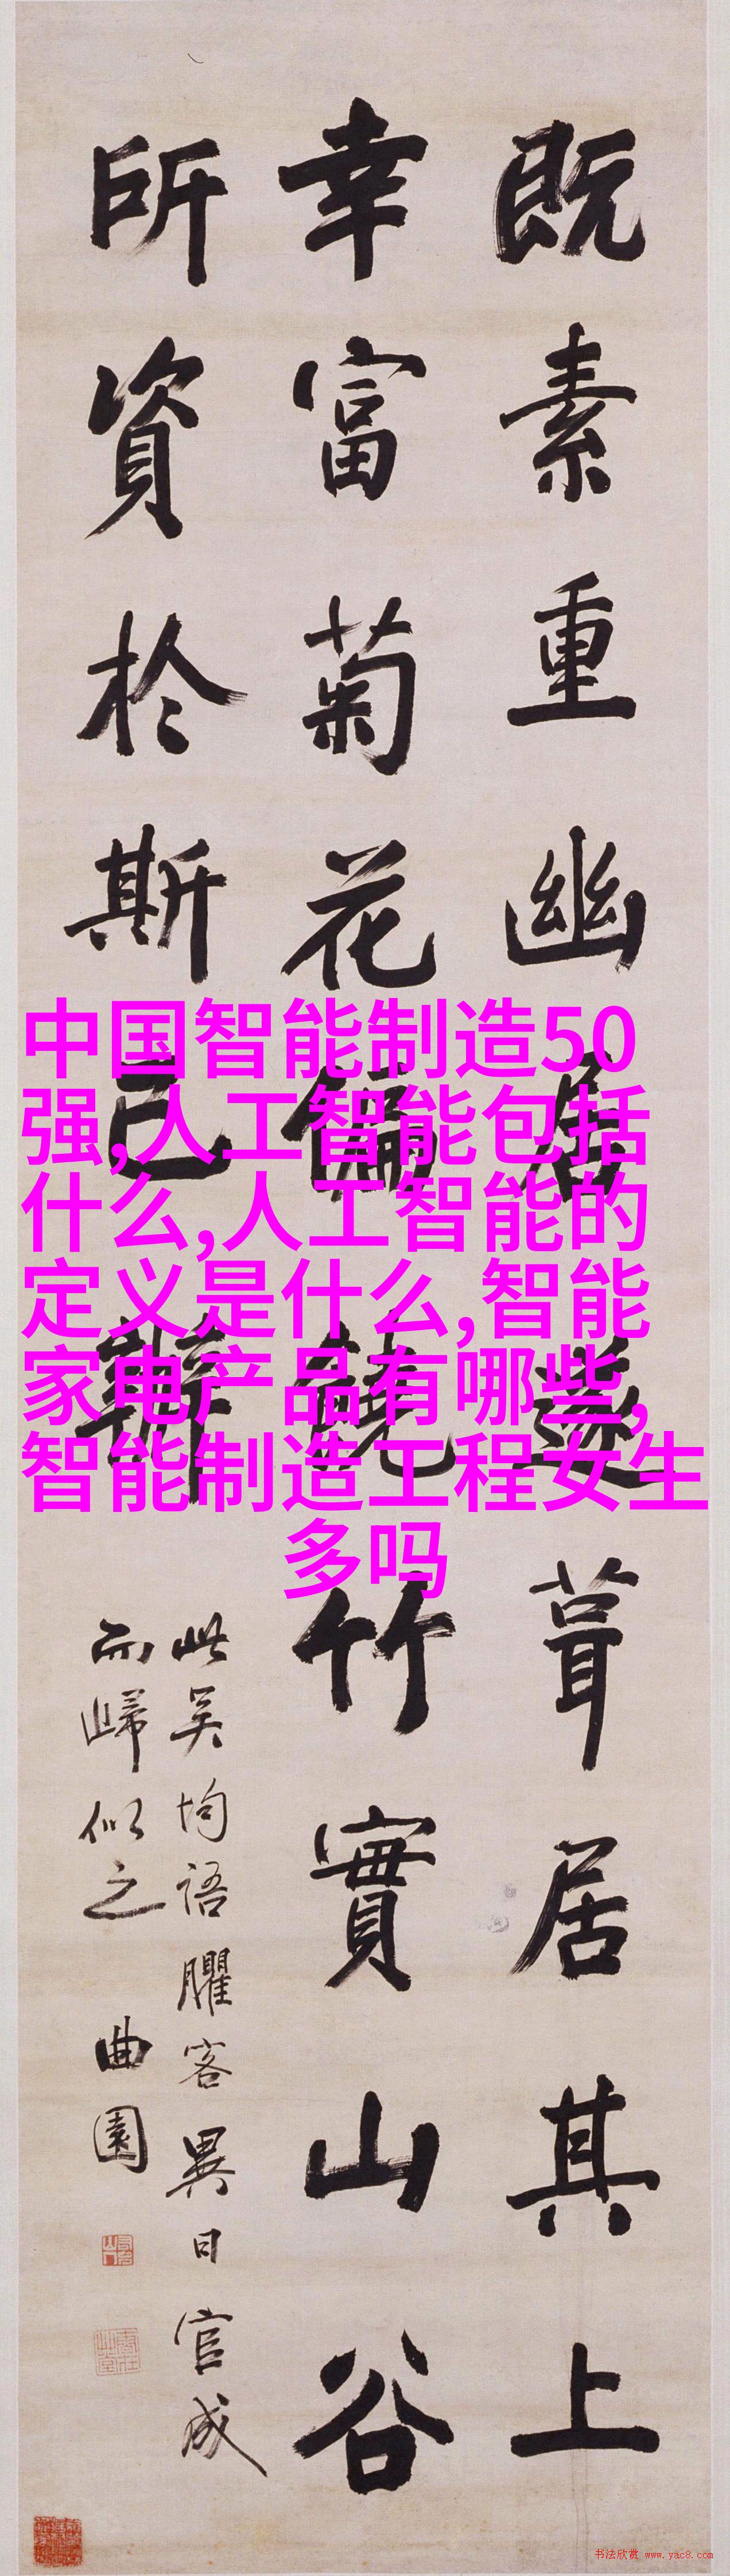 既素重幽居遂葺居其上
幸富菊花偏饒竹實山谷
所資於斯已辦
此吳均語臞客異日官成
而歸似之 曲園
中国智能制造50
强,人工智能包括
什么,人工智能的
定义是什么,智能
家电产品有哪些,
智能制造工程女生
多吗
书法欣赏 www.yac8.com